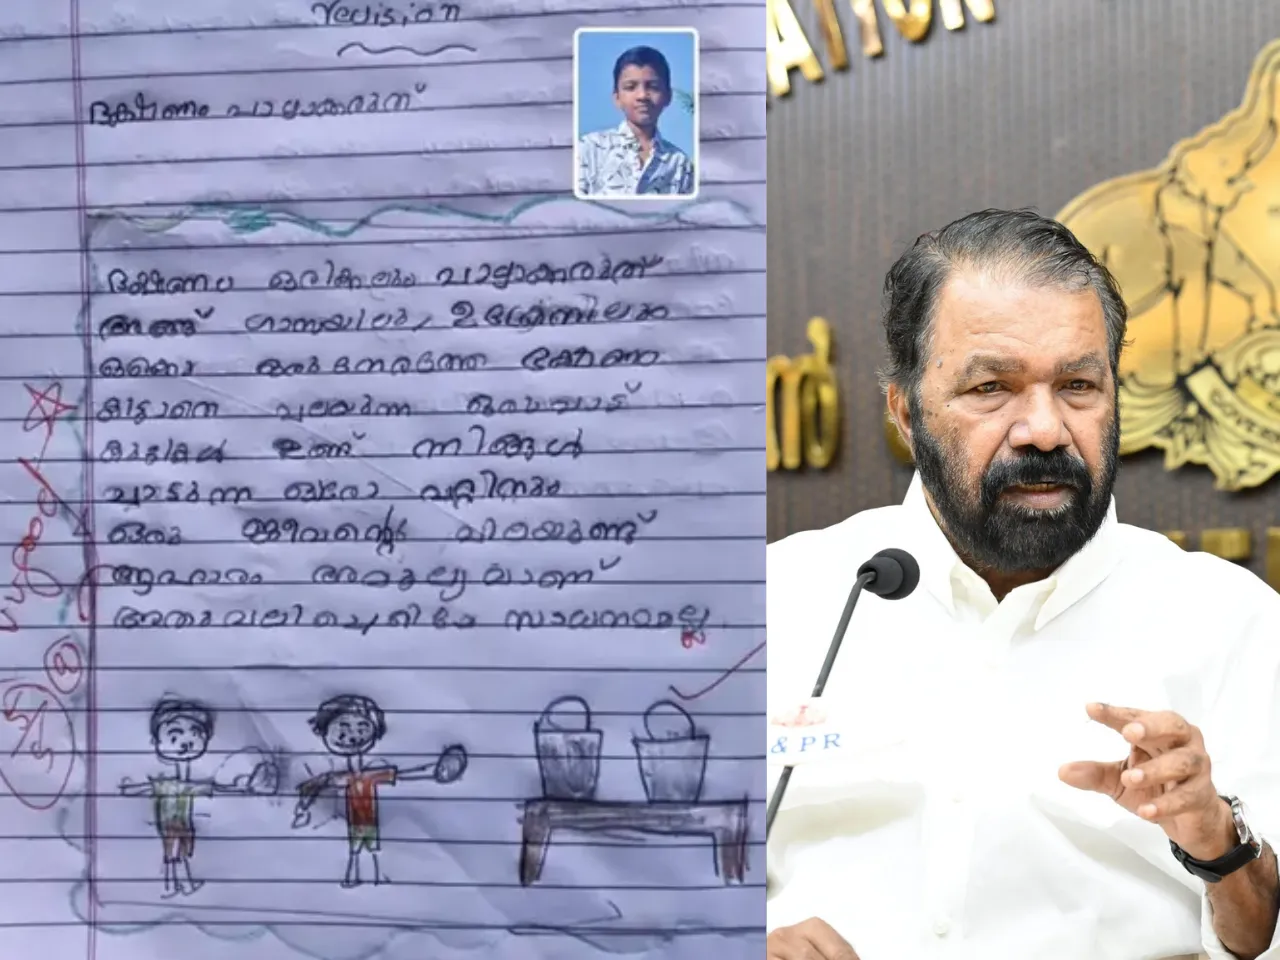 revision
ഭക്ഷണം പാഴാക്കരുത്
ഭക്ഷണം ഒരിക്കലും പാഴാക്കരുത്
അങ്ങ് ഗാസയിലും, ഉക്രേനിലും
ഒക്കെ ഒരുനേരത്തെ ഭക്ഷണം
കിട്ടാതെ വലയുന്ന ഒരുപാട്
കുട്ടികൾ ഉണ്ട് നിങ്ങൾ
കളയുന്ന ഓരോ വറ്റിനും
ഒരു ജീവന്റെ വിലയുണ്ട്
ആഹാരം അമൂല്യമാണ്
അതുവലിച്ചെറിയേണ്ട സാധനമല്ല
ATION
& PR